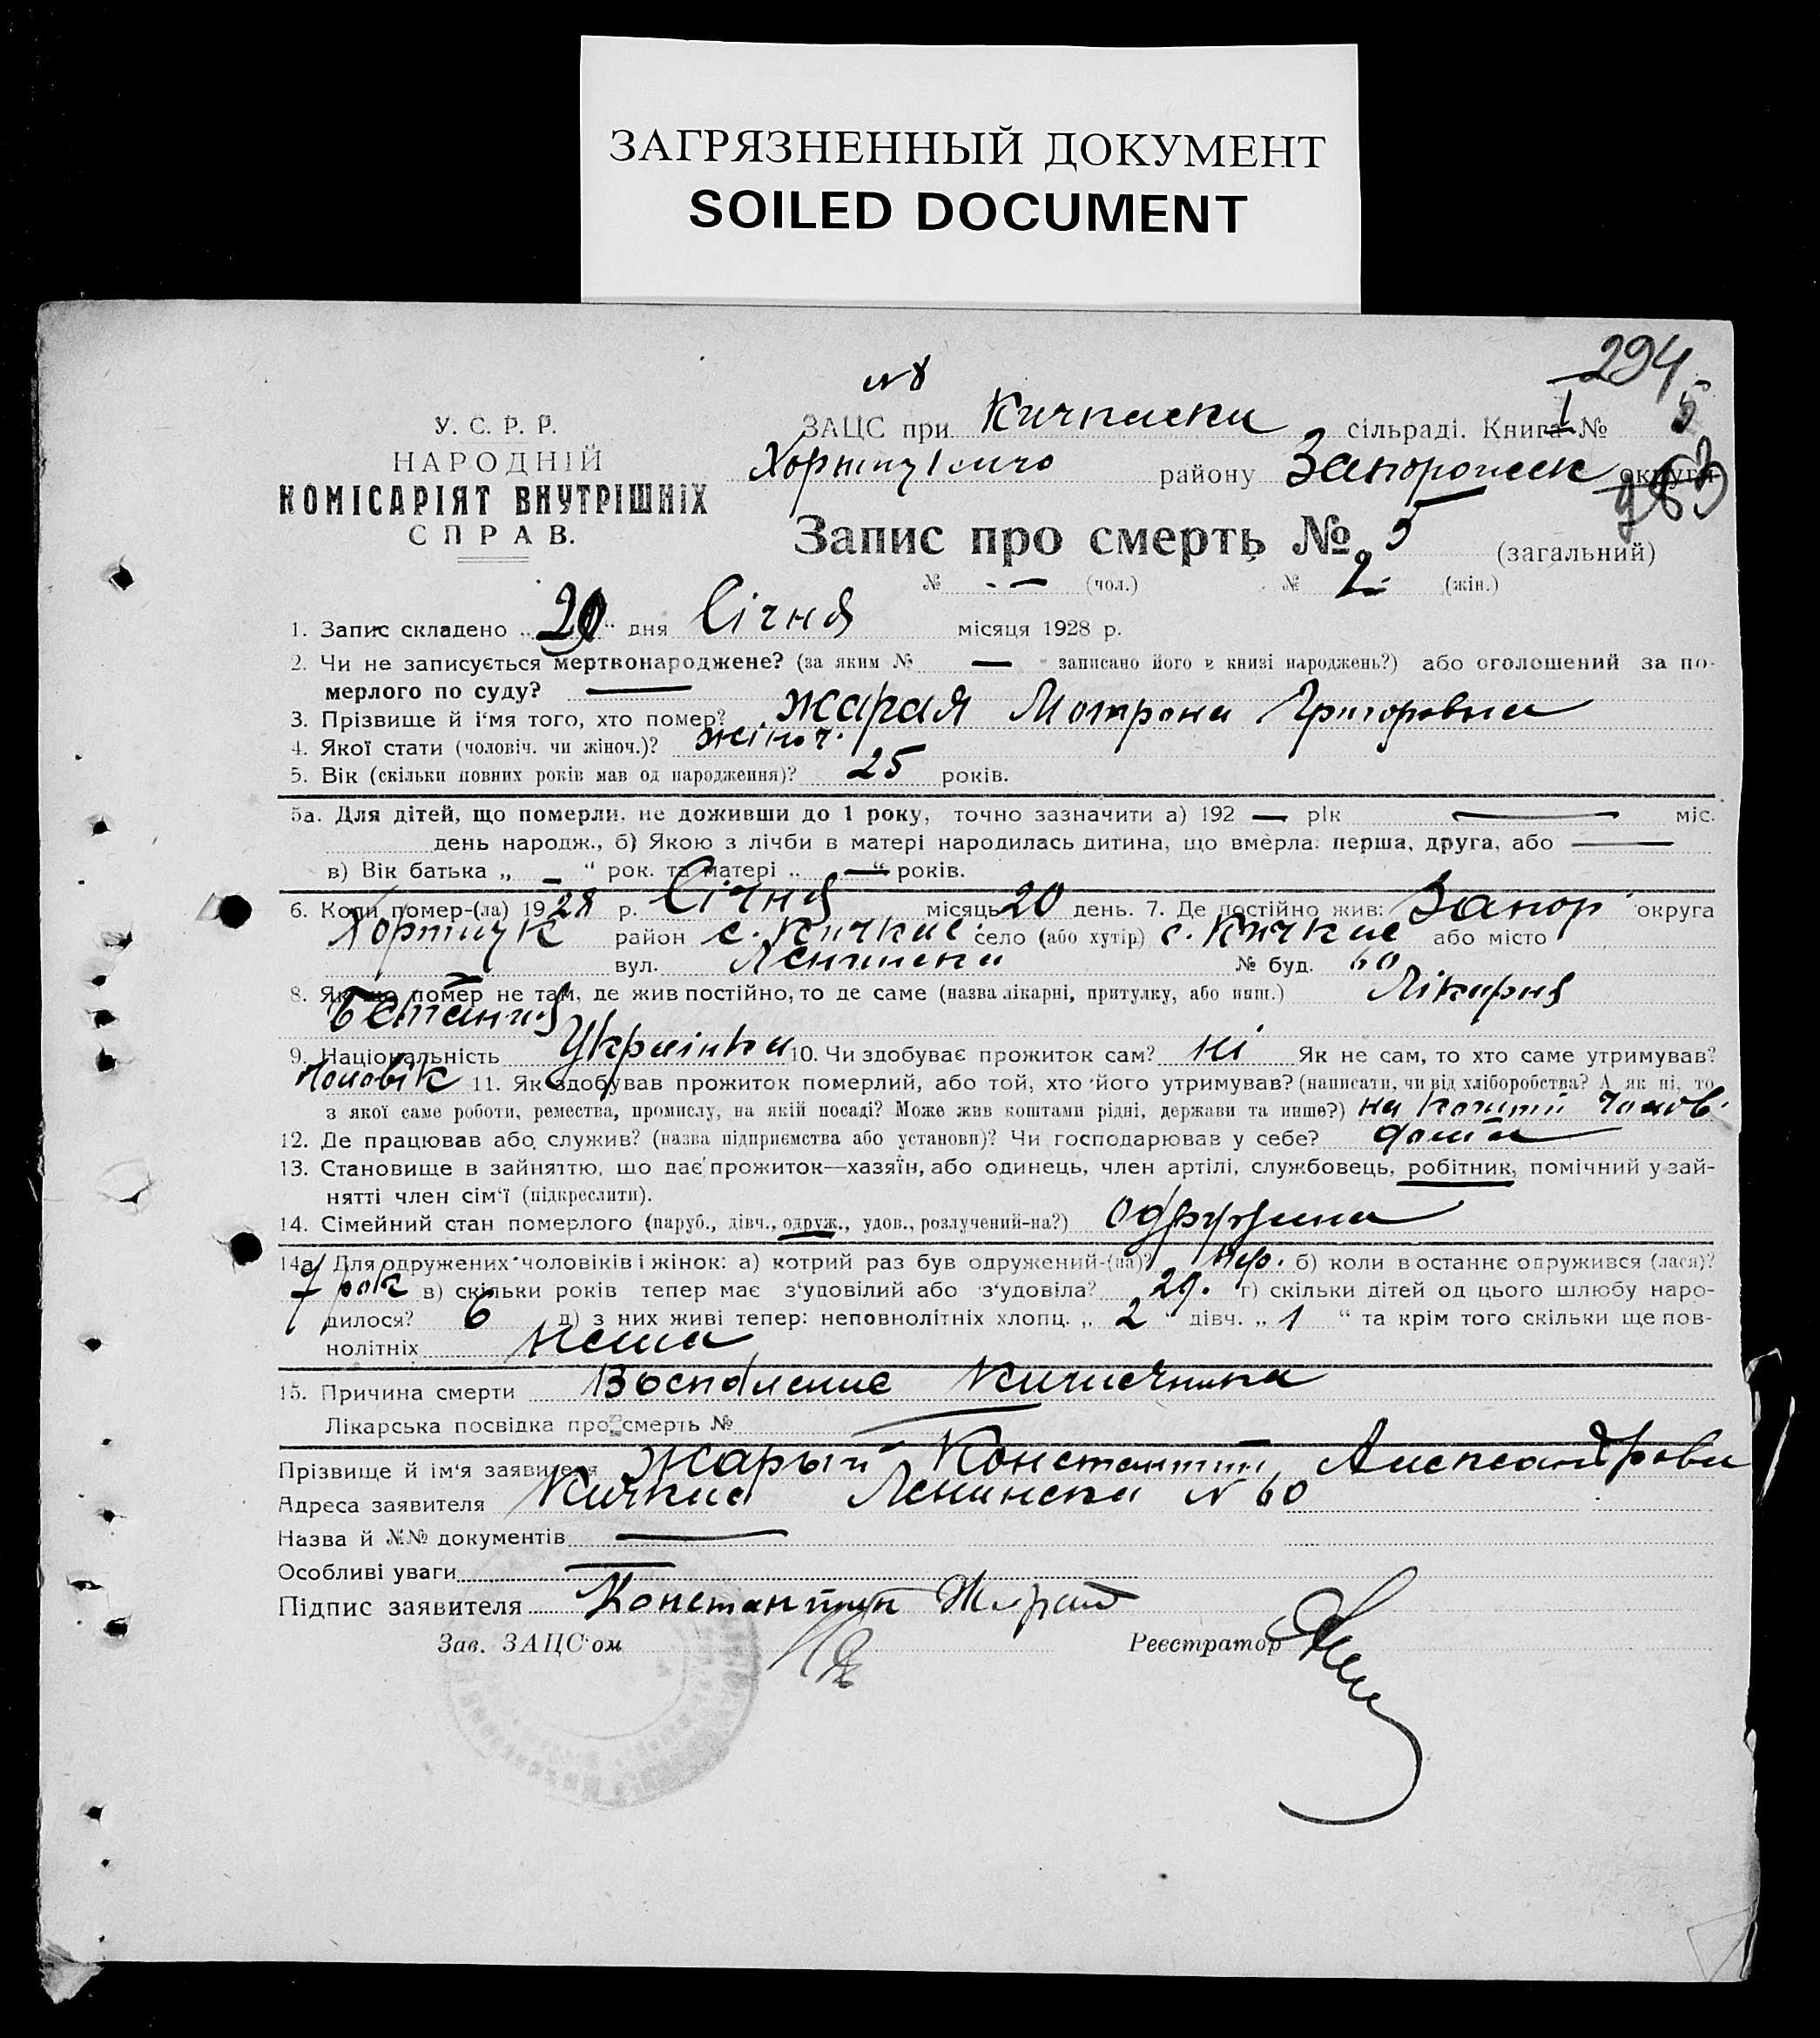 ЗАГРЯЗНЕННЫЙ ДОКУМЕНТ
SOILED DOCUMENT
294
№ 8
У. С. Р. Р.
НАРОДНІЙ
КОМІСАРІЯТ ВНУТРІШНІХ
СПРАВ.
ЗАЦС при Кичкаски сільраді. Книга 1 № 5
району Запорожск округи
Запис про смерть № 5 (загальний)
№ - — (чол.) № 2 (жін.)
1. Запис складено „ 20 “ дня Січня місяця 1928 р.
2. Чи не записується мертвонароджене? (за яким № — записано його в книзі народжень?) або оголошений за по-
мерлого по суду? —
3. Прізвище й ім'я того, хто помер? Жарая Мотрона Григоровна
4. Якої стати (чоловіч. чи жіноч.)? жіноч.
5. Вік (скільки повних років мав од народження)? 25 років.
5а. Для дітей, що померли, не доживши до 1 року, точно зазначити а) 192 — рік — міс.
день народж., б) Якою з лічби в матері народилась дитина, що вмерла: перша, друга, або —
в) Вік батька „ — “ рок. та матері „ — “ років.
6. Коли помер-(ла) 1928 р. Січня місяць 20 день. 7. Де постійно жив: Запор округа
Хортицк район с. Кичкас село (або хутір) с. Кичкас або місто
вул. Ленинска № буд. 60
8. Якщо помер не там, де жив постійно, то де саме (назва лікарні, притулку, або инш.) Лікарня
Бетания
9. Національність Українка 10. Чи здобуває прожиток сам? ні Як не сам, то хто саме утримував?
Чоловік 11. Як здобував прожиток померлий, або той, хто його утримував? (написати, чи від хліборобства? А як ні, то
з якої саме роботи, ремества, промислу, на якій посаді? Може жив коштами рідні, держави та инше?) на кошти чолов.
12. Де працював або служив? (назва підприємства або установи)? Чи господарював у себе? дома
13. Становище в зайняттю, що дає прожиток—хазяїн, або одинець, член артілі, службовець, робітник, помічний у зай-
нятті член сім'ї (підкреслити).
14. Сімейний стан померлого (паруб., дівч., одруж., удов., розлучений-на?) Одружена
14а. Для одружених чоловіків і жінок: а) котрий раз був одружений-(на)? пер. б) коли востаннє одружився (лася)?
7 рок в) скільки років тепер має з'удовілий або з'удовіла? 29. г) скільки дітей од цього шлюбу наро-
дилося? 6 д) з них живі тепер: неповнолітніх хлопц. „ 2 дівч. „ 1 “ та крім того скільки ще пов-
нолітніх нема
15. Причина смерти Воспаление Кишечника
Лікарська посвідка про смерть № —
Прізвище й ім'я заявителя Жарый Константин Александрови
Адреса заявителя Кичкас Ленинска № 60
Назва й №№ документів —
Особливі уваги —
Підпис заявителя Константин Жарай
Зав. ЗАЦС'ом Реєстратор